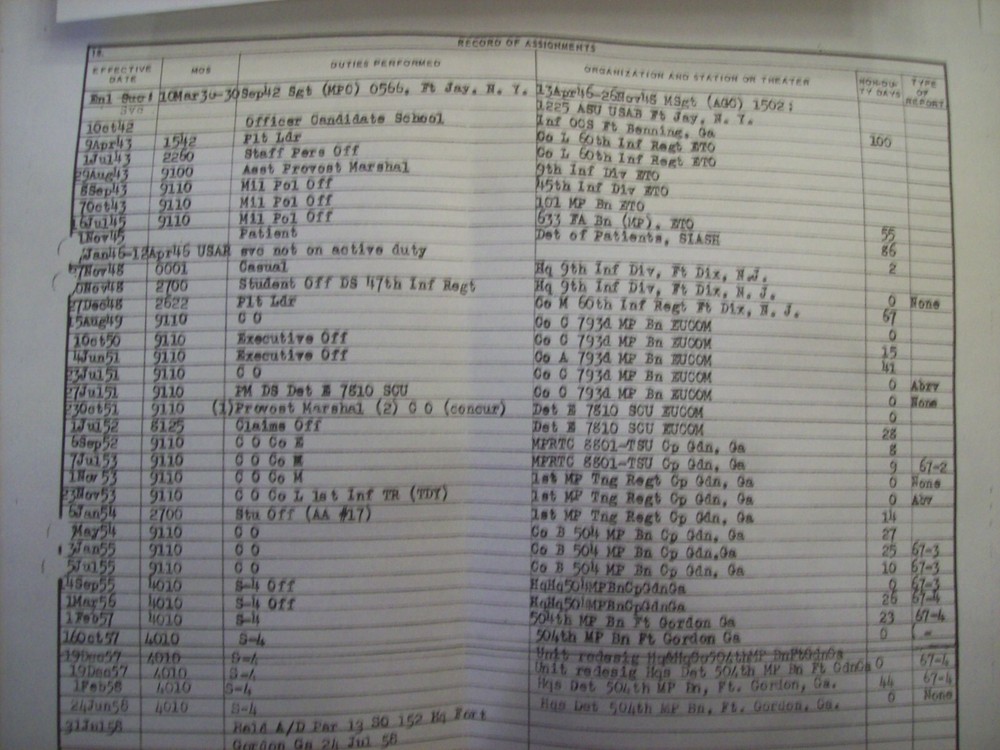 18. RECORD OF ASSIGNMENTS
EFFECTIVE DATE MOS DUTIES PERFORMED ORGANIZATION AND STATION OR THEATER NON-DUTY DAYS TYPE OF REPORT
Enl Svc: 10Mar30-30Sep42 Sgt (MPC) 0566, Ft Jay, N. Y. 13Apr46-26Nov48 MSgt (AGO) 1502;
Svc 1225 ASU USAB Ft Jay, N. Y.
1Oct42 Officer Candidate School Inf OCS Ft Benning, Ga
9Apr43 1542 Plt Ldr Co L 60th Inf Regt ETO 100
1Jul43 2260 Staff Pers Off Co L 60th Inf Regt ETO
29Aug43 9100 Asst Provost Marshal 9th Inf Div ETO
8Sep43 9110 Mil Pol Off 45th Inf Div ETO
7Oct43 9110 Mil Pol Off 101 MP Bn ETO
16Jul45 9110 Mil Pol Off 633 FA Bn (MP), ETO
1Nov45 Patient Det of Patients, 55
Jan46-12Apr46 USAR svc not on active duty 86
7Nov48 0001 Casual Hq 9th Inf Div, Ft Dix, N.J. 2
0Nov48 2700 Student Off DS 47th Inf Regt Hq 9th Inf Div, Ft Dix, N. J.
27Dec48 2622 Plt Ldr Co M 60th Inf Regt Ft Dix, N. J. 0 None
15Aug49 9110 C O Co C 793d MP Bn EUCOM 67
1Oct50 9110 Executive Off Co C 793d MP Bn EUCOM 0
4Jun51 9110 Executive Off Co A 793d MP Bn EUCOM 15
23Jul51 9110 C O Co C 793d MP Bn EUCOM 41
27Jul51 9110 PM DS Det E 7810 SCU Co C 793d MP Bn EUCOM 0 Abrv
23Oct51 9110 (1)Provost Marshal (2) C O (concur) Det E 7810 SCU EUCOM 0 None
1Jul52 8125 Claims Off Det E 7810 SCU EUCOM 28
6Sep52 9110 C O Co E MPRTC 8801-TSU Cp Gdn, Ga 8
7Jul53 9110 C O Co MPRTC 8801-TSU Cp Gdn, Ga 9 67-2
1Nov53 9110 C O Co M 1st MP Tng Regt Cp Gdn, Ga 0 None
23Nov53 9110 C O Co L 1st Inf TR (TDY) 1st MP Tng Regt Cp Gdn, Ga 0 Abv
6Jan54 2700 Stu Off (AA #17) 1st MP Tng Regt Cp Gdn, Ga 14
May54 9110 C O Co B 504 MP Bn Cp Gdn, Ga 27
3Jan55 9110 C O Co B 504 MP Bn Cp Gdn,Ga 25 67-3
5Jul55 9110 C O Co B 504 MP Bn Cp Gdn, Ga 10 67-3
14Sep55 4010 S-4 Off HqHq504MPBnCpGdnGa 0 67-3
1Mar56 4010 S-4 Off HqHq504MPBnCpGdnGa 26 67-4
1Feb57 4010 S-4 504th MP Bn Ft Gordon Ga 23 67-4
16Oct57 4010 S-4 504th MP Bn Ft Gordon Ga 0 -
19Dec57 4010 S-4 Unit redesig HqHqCo504thMP BnFtGdnGa
19Dec57 4010 S-4 Unit redesig Hqs Det 504th MP Bn Ft GdnGa 0 67-4
1Feb58 4010 S-4 Hqs Det 504th MP Bn, Ft. Gordon, Ga. 44 67-4
24Jun58 4010 S-4 Hqs Det 504th MP Bn, Ft. Gordon, Ga. 0 None
31Jul58 Reld A/D Par 13 SO 152 Hq Fort
Gordon Ga 24 Jul 58